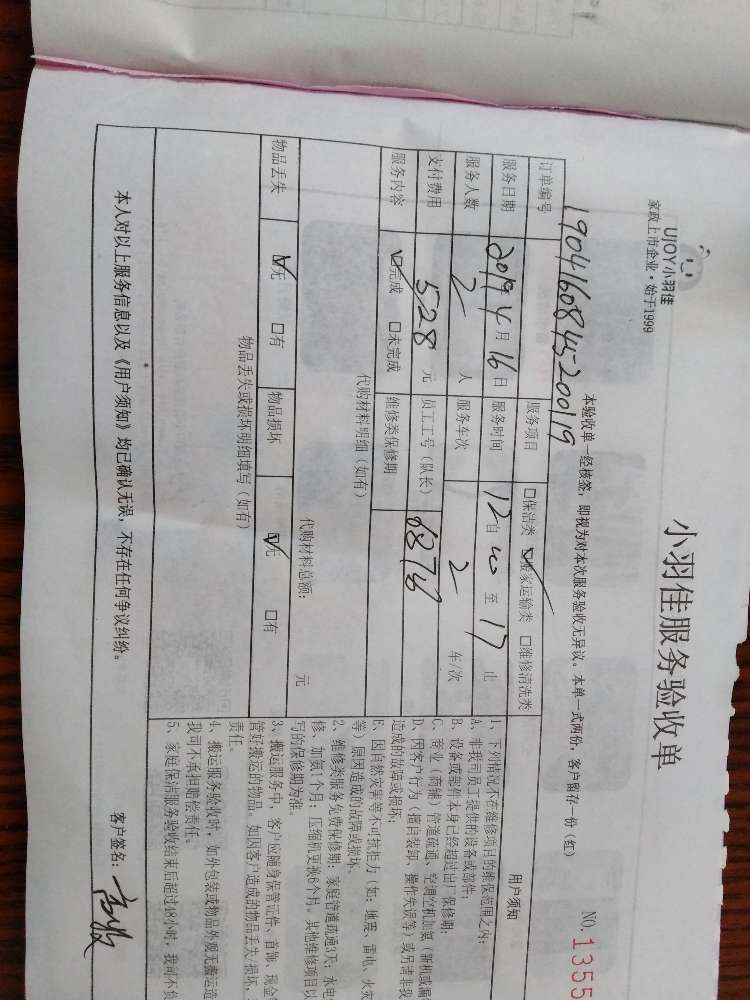 UJOY小羽佳
家政上市企业·始于1999
小羽佳服务验收单
NO.1355
本验收单一经核签，即视为对本次服务验收无异议。本单一式两份，客户留存一份（红）
订单编号 190416084520019 服务项目 □保洁类 ☑搬家运输类 □维修清洗类
服务日期 2019年4月16日 服务时间 自 12 至 17 止
服务人数 2 人 服务车次 2 车/次
支付费用 528 元 员工工号（队长） 6876
服务内容 ☑完成 □未完成 维修类保修期
代购材料明细（如有）
代购材料总额： 元
物品丢失 ☑无 □有 物品损坏 ☑无 □有
物品丢失或损坏明细填写（如有）
用户须知
1、下列情况不在维修项目的维保范围之内：
A、非我司员工提供的设备或部件；
B、设备或部件本身已经超过出厂保修期；
C、商业（商铺）管道疏通、空调空机加氨（新机或漏
D、因客户行为（擅自装卸、操作失误等）或另请非我
造成的故障或损坏；
E、因自然灾害等不可抗拒力（如：地震、雷电、火灾
等）原因造成的故障或损坏。
2、维修类服务免费保修期：家庭管道疏通3天；水电
修、加氨1个月；压缩机更换6个月，其他维修项目以
写的保修期为准。
3、搬运服务中，客户应随身保管证件、首饰、现金
管好搬运的物品。如因客户造成的物品丢失/损坏，
责任。
4、搬运服务验收时，如外包装或物品外观无搬运造
我司不承担赔偿责任。
5、家庭保洁服务验收结束后超过48小时，我司不负
本人对以上服务信息以及《用户须知》均已确认无误，不存在任何争议纠纷。
客户签名：